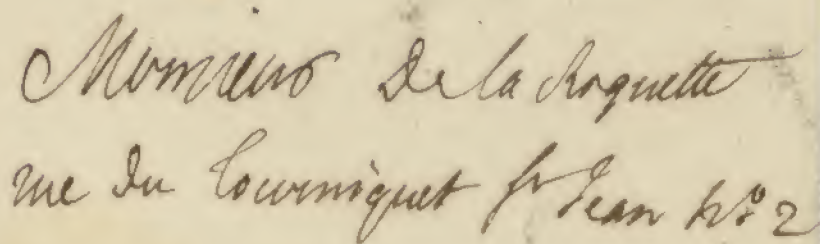 Monsieur De la Roquette
rue du Tourniquet St Jean No 2